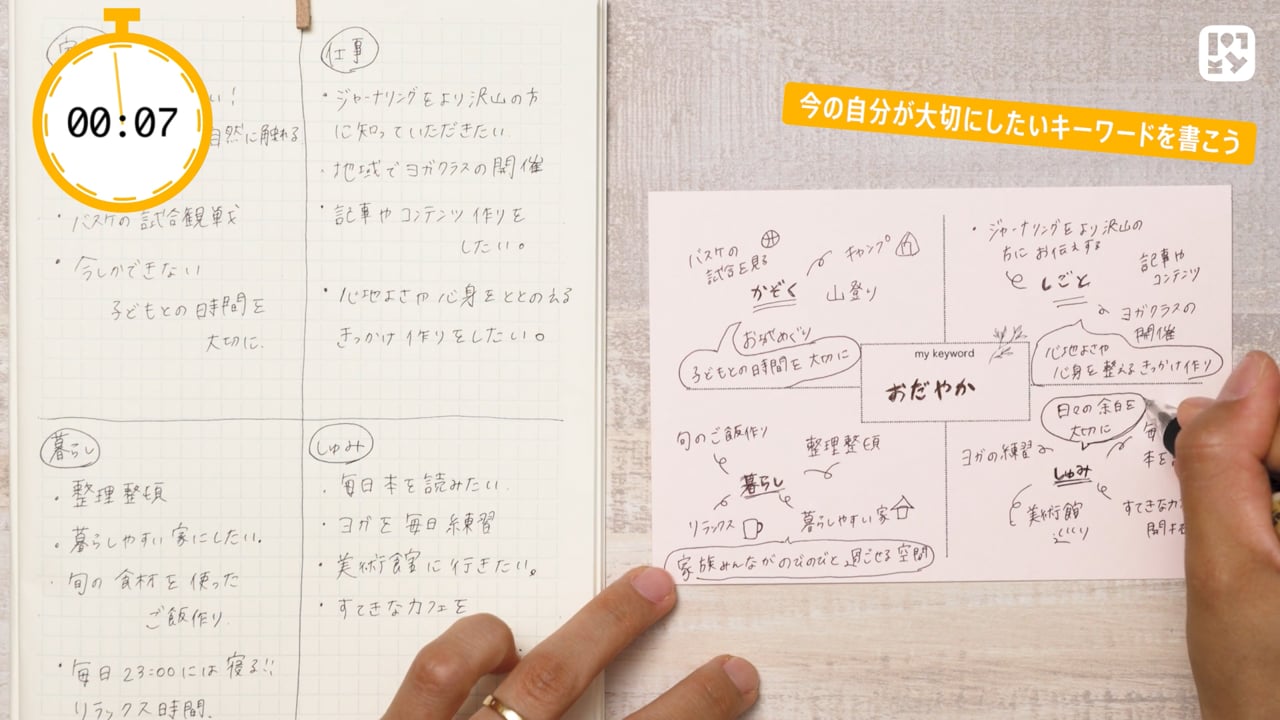 00:07
今の自分が大切にしたいキーワードを書こう
い!
自然に触れる
・バスケの試合観戦
・今しかできない
子どもとの時間を
大切に.
仕事
・ジャーナリングをより沢山の方
に知っていただきたい.
・地域でヨガクラスの開催
・記事やコンテンツ作りを
したい。
・心地よさや心身をととのえる
きっかけ作りをしたい。
暮らし
・整理整頓
・暮らしやすい家にしたい.
・旬の食材を使った
ご飯作り.
・毎日23:00には寝る!!
リラックス時間.
しゅみ
・毎日本を読みたい.
・ヨガを毎日練習
・美術館に行きたい。
・すてきなカフェを
バスケの
試合を見る
キャンプ
かぞく
山登り
お城めぐり
子どもとの時間を大切に
・ジャーナリングをより沢山の
方にお伝えする
しごと
記事や
コンテンツ
ヨガクラスの
開催
心地よさや
心身を整えるきっかけ作り
my keyword
おだやか
旬のご飯作り
整理整頓
暮らし
リラックス
暮らしやすい家
家族みんながのびのびと過ごせる空間
日々の余白を
大切に
ヨガの練習
毎
本を
しゅみ
美術館
すてきなカフ
開拓